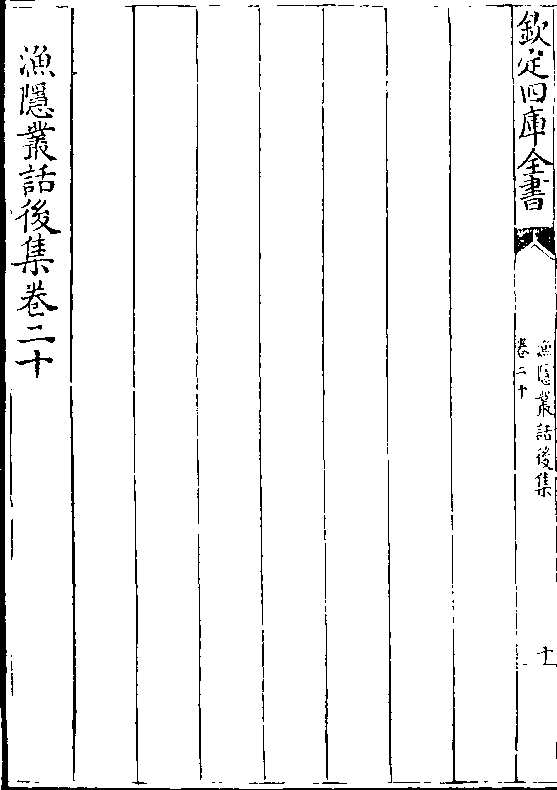 欽定四庫全書
漁隱叢話後集
卷二十
十
漁隱叢話後集卷二十